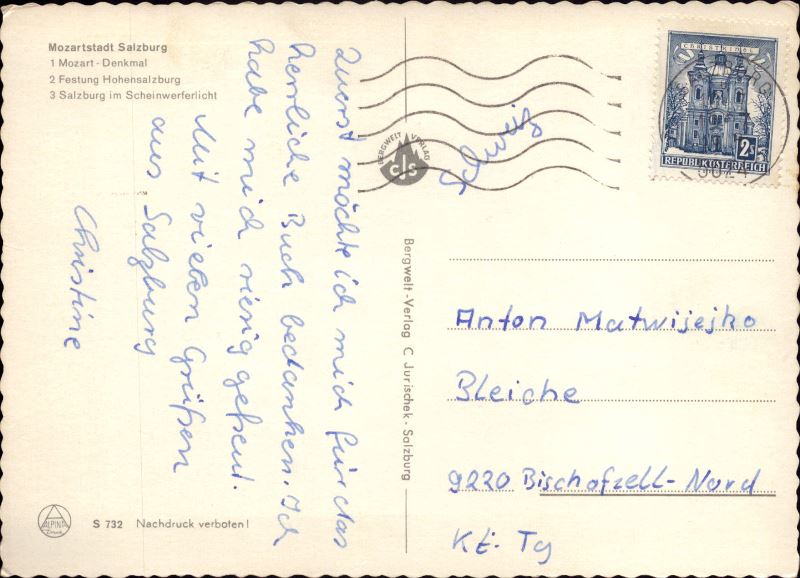 Mozartstadt Salzburg
1 Mozart - Denkmal
2 Festung Hohensalzburg
3 Salzburg im Scheinwerferlicht
Zuerst möchte ich mich für das
herrliche Buch bedanken. Ich
habe mich riesig gefreut.
Mit vielen Grüßen
aus Salzburg
Christine
BERGWELT VERLAG
CJS
Bergwelt-Verlag C Jurischek - Salzburg
Schweiz
CHRISTKINDL
2S
REPUBLIK ÖSTERREICH
5024
Anton Matwijejko
Bleiche
9220 Bischofzell-Nord
Kt. Tg
ALPINA
Druck
S 732 Nachdruck verboten!